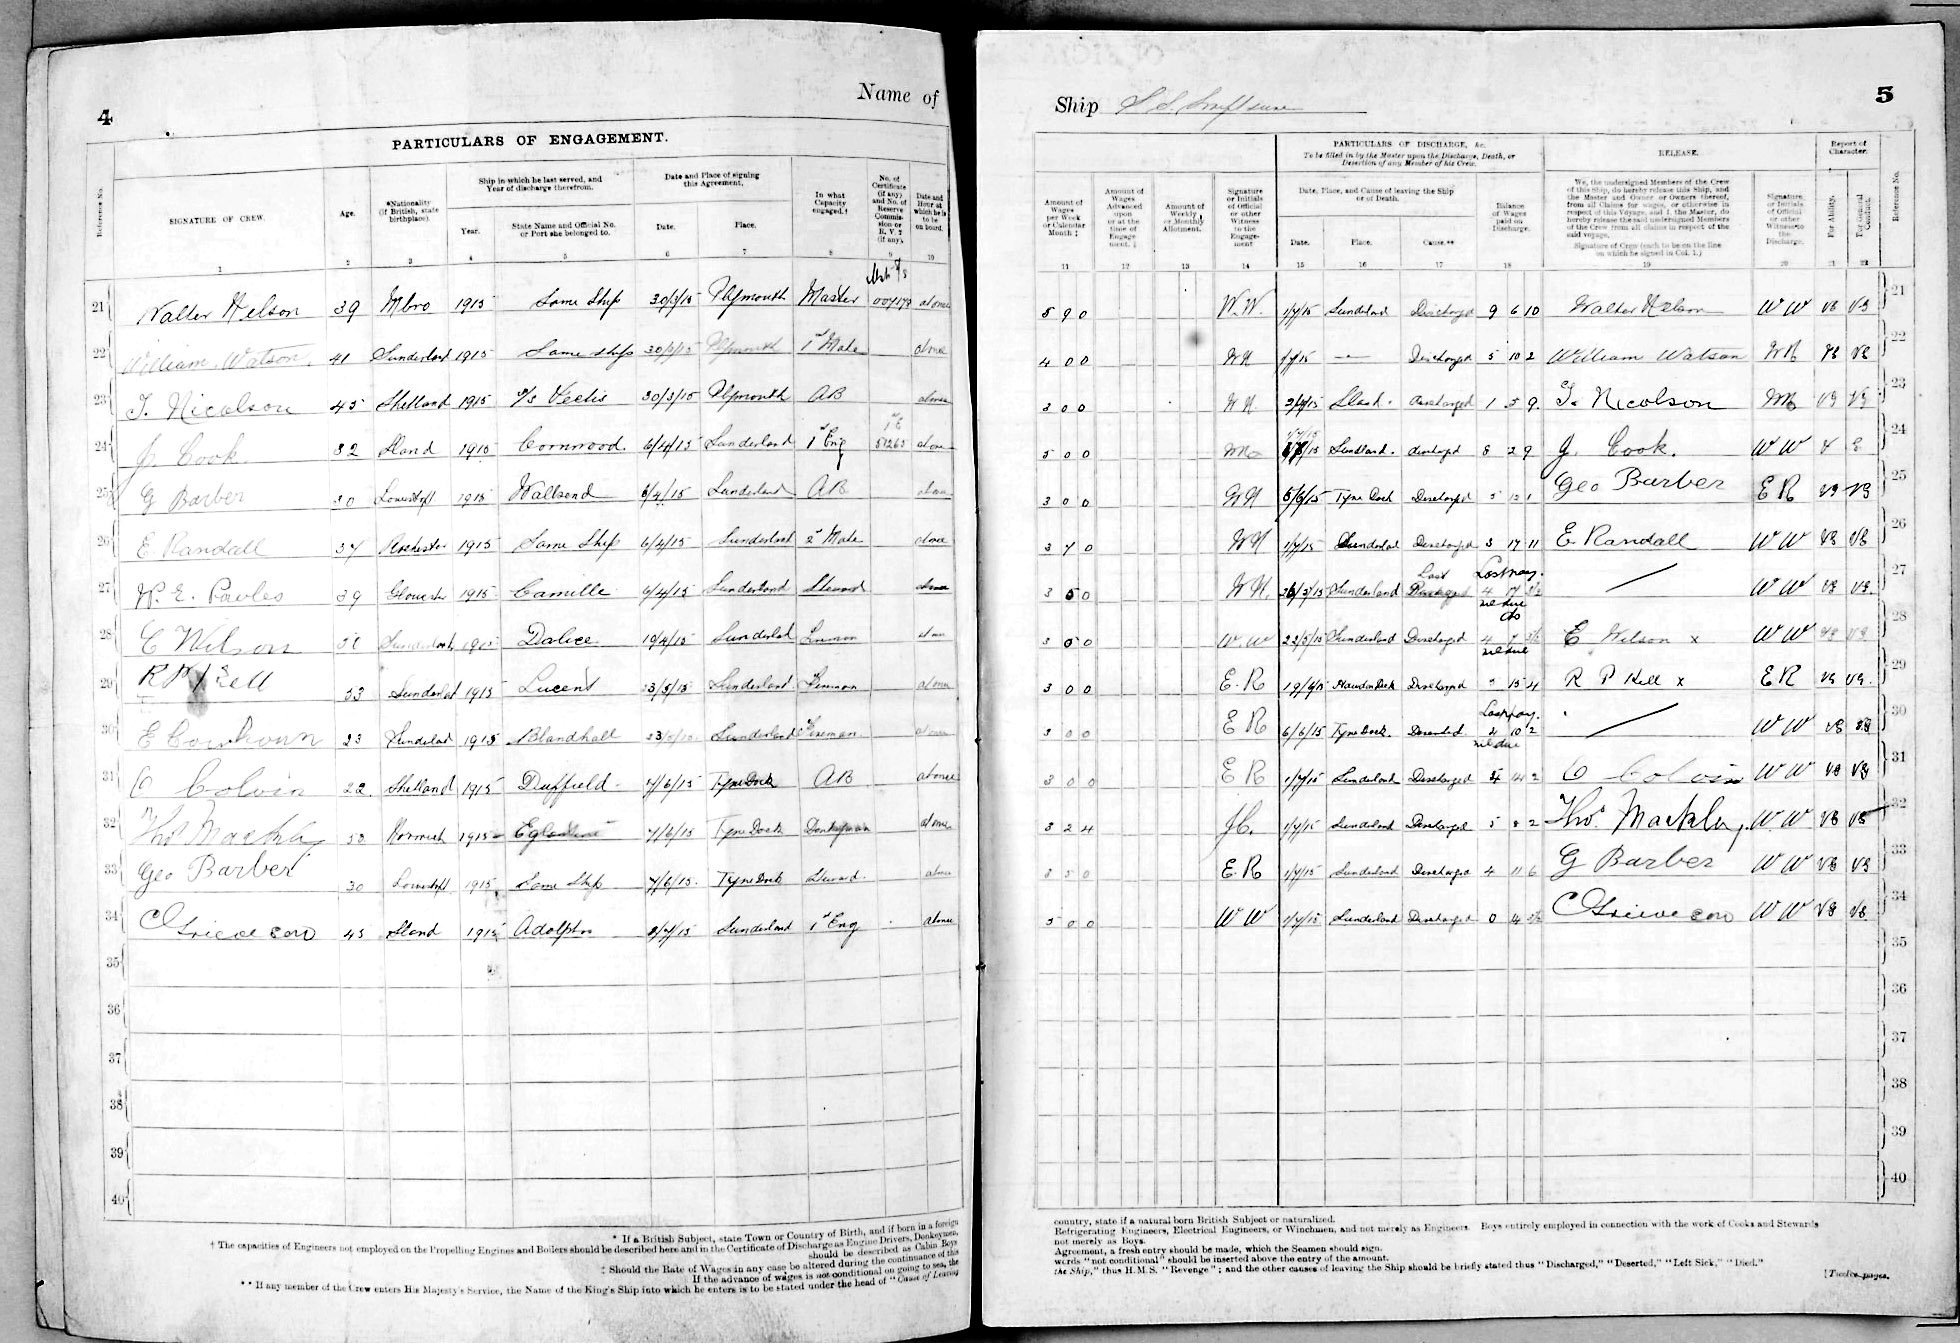 4
Name of
PARTICULARS OF ENGAGEMENT.
Reference No.
SIGNATURE OF CREW.
Age.
*Nationality (if British, state birthplace).
Ship in which he last served, and Year of discharge therefrom.
Year.
State Name and Official No. or Port she belonged to.
Date and Place of signing this Agreement.
Date.
Place.
In what Capacity engaged.†
No. of Certificate (if any) and No. of Reserve Commission or R.V.2 (if any).
Date and Hour at which he is to be on board.
1 2 3 4 5 6 7 8 9 10
21 Walter Nelson 39 Mbro 1915 Same Ship 30/3/15 Plymouth Master 004173 at once
22 William Watson 41 Sunderland 1915 Same Ship 30/3/15 Plymouth 1st Mate at once
23 T. Nicolson 45 Shetland 1915 s/s Vectis 30/3/15 Plymouth AB at once
24 J. Cook 32 Sland 1915 Cornwood 6/4/15 Sunderland 1st Eng 51265 at once
25 G Barber 30 Lowestoft 1915 Wallsend 6/4/15 Sunderland AB at once
26 E. Randall 37 Rochester 1915 Same Ship 6/4/15 Sunderland 2nd Mate at once
27 W. E. Pavles 39 Gloucester 1915 Camille 6/4/15 Sunderland Steward at once
28 C Wilson Sunderland 1915 Dalice 19/4/15 Sunderland Fireman at once
29 R P Kell 53 Sunderland 1915 Lucent 23/5/15 Sunderland Fireman at once
30 E 23 Sunderland 1915 Blandhall 23/5/15 Sunderland Fireman at once
31 Colvin 22 Shetland 1915 Duffield 7/6/15 Tyne Dock AB at once
32 Thos Mackley 53 Norwich 1915 7/6/15 Tyne Dock Donkeyman at once
33 Geo Barber 30 Lowestoft 1915 Same Ship 7/6/15 Tyne Dock Steward at once
34 C Grieveson 45 Sland 1915 Adolph 2/7/15 Sunderland 1st Eng at once
35
36
37
38
39
40
* If a British Subject, state Town or Country of Birth, and if born in a foreign
† The capacities of Engineers not employed on the Propelling Engines and Boilers should be described here and in the Certificate of Discharge as Engine Drivers, Donkeymen,
should be described as Cabin Boys
‡ Should the Rate of Wages in any case be altered during the continuance of this
If the advance of wages is not conditional on going to sea, the
** If any member of the Crew enters His Majesty's Service, the Name of the King's Ship into which he enters is to be stated under the head of "Cause of Leaving
Ship S.S. Swiftsure
5
PARTICULARS OF DISCHARGE, &c.
To be filled in by the Master upon the Discharge, Death, or Desertion of any Member of his Crew.
RELEASE.
Report of Character.
Amount of Wages per Week or Calendar Month ‡
Amount of Wages Advanced upon or at the time of Engagement. ‡
Amount of Weekly or Monthly Allotment.
Signature or Initials of Official or other Witness to the Engagement
Date, Place, and Cause of leaving the Ship or of Death.
Date.
Place.
Cause.**
Balance of Wages paid on Discharge.
We, the undersigned Members of the Crew of this Ship, do hereby release this Ship, and the Master and Owner or Owners thereof, from all Claims for wages, or otherwise in respect of this Voyage, and I, the Master, do hereby release the said undersigned Members of the Crew from all claims in respect of the said voyage.
Signature of Crew (each to be on the line on which he signed in Col. 1.)
Signature or Initials of Official or other Witness to the Discharge.
For Ability.
For General Conduct.
Reference No.
11 12 13 14 15 16 17 18 19 20 21 22
5 9 0 W.W. 1/7/15 Sunderland Discharged 9 6 10 Walter Nelson W W VG VG 21
4 0 0 WN 1/7/15 Discharged 5 10 2 William Watson WN VG VG 22
3 0 0 WN Discharged 1 5 9 T. Nicolson WN VG VG 23
5 0 0 WN Sunderland discharged 8 2 9 J. Cook. W W 24
3 0 0 WN 5/6/15 Tyne Dock Discharged 5 12 1 Geo Barber E R VG VG 25
3 7 0 WN 1/7/15 Sunderland Discharged 3 17 11 E. Randall W W VG VG 26
3 5 0 WN. Sunderland Lost pay. nil due W W VG VG 27
3 0 0 W.W 22/5/15 Sunderland Discharged 4 7 nil due C Wilson x W W VG VG 28
3 0 0 E.R 19/6/15 Discharged 15 4 R P Kell x E R VG VG 29
3 0 0 E R 6/6/15 Tyne Dock. Deserted Lost pay. 2 10 2 nil due W W VG VG 30
3 0 0 E R 1/7/15 Sunderland Discharged 4 14 2 Colvin W W VG VG 31
3 2 4 JC. 1/7/15 Sunderland Discharged 5 8 2 Thos. Mackley. W W VG VG 32
3 5 0 E.R 1/7/15 Sunderland Discharged 4 11 6 G Barber W W VG VG 33
5 0 0 W W 1/7/15 Sunderland Discharged 0 14 C Grieveson W W VG VG 34
35
36
37
38
39
40
country, state if a natural born British Subject or naturalized.
Refrigerating Engineers, Electrical Engineers, or Winchmen, and not merely as Engineers. Boys entirely employed in connection with the work of Cooks and Stewards
not merely as Boys.
Agreement, a fresh entry should be made, which the Seamen should sign.
words "not conditional" should be inserted above the entry of the amount.
the Ship," thus H.M.S. "Revenge"; and the other causes of leaving the Ship should be briefly stated thus "Discharged," "Deserted," "Left Sick," "Died."
[Twelve pages.